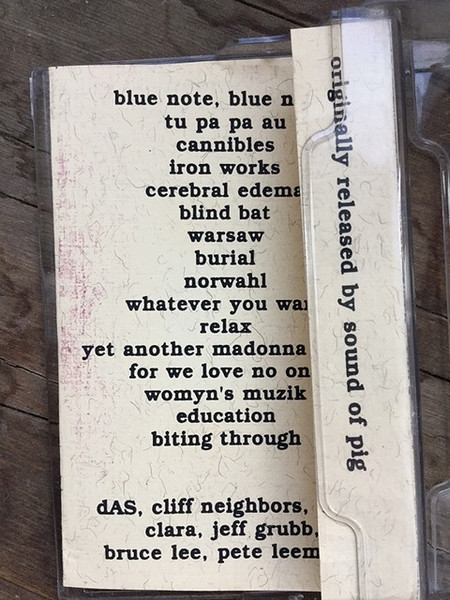 blue note, blue n
tu pa pa au
cannibles
iron works
cerebral edema
blind bat
warsaw
burial
norwahl
whatever you wan
relax
yet another madonna
for we love no on
womyn's muzik
education
biting through
dAS, cliff neighbors,
clara, jeff grubb,
bruce lee, pete leem
originally released by sound of pig